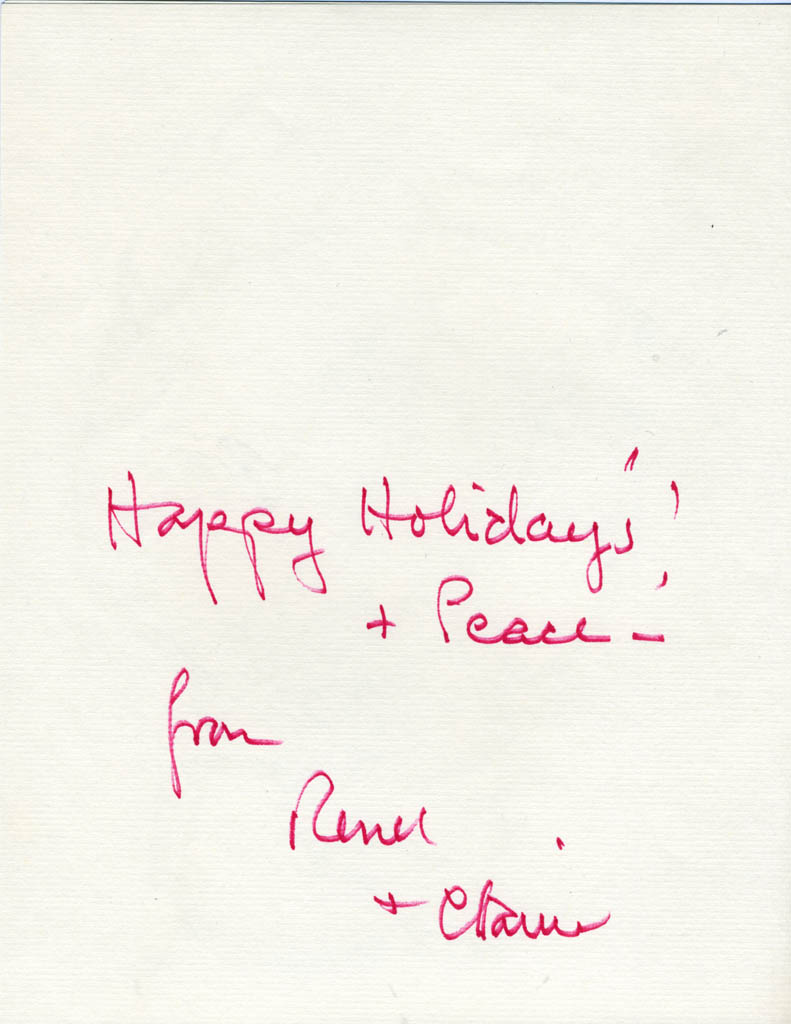 Happy Holidays!
+ Peace –
from
Renee
+ Chaim